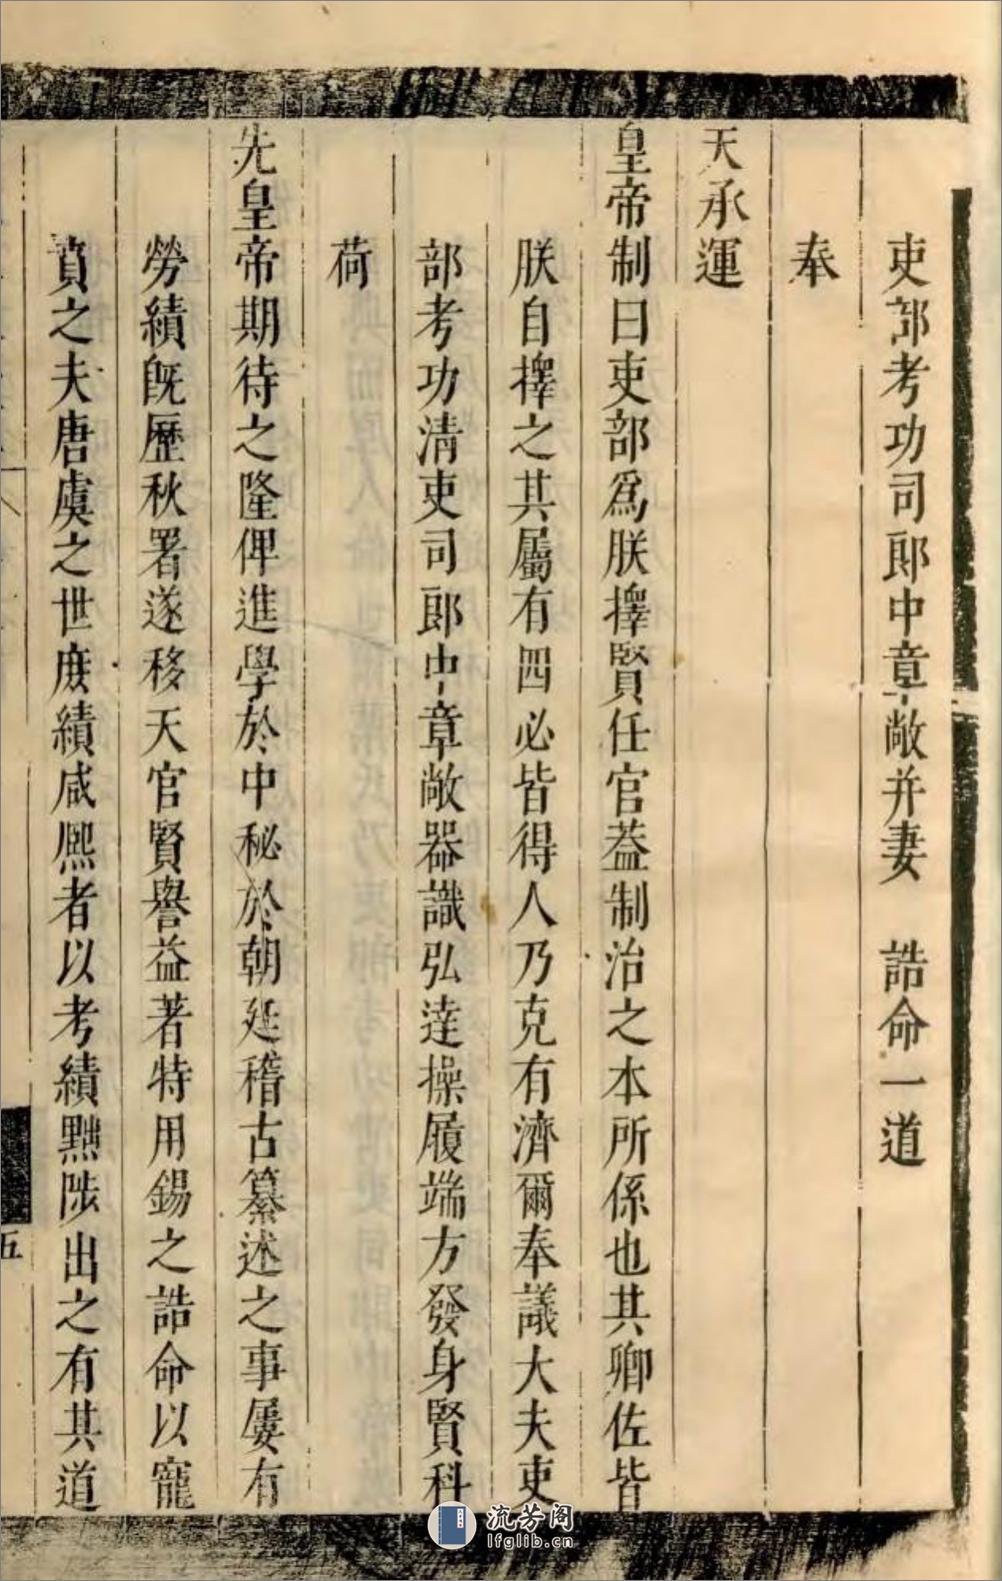 吏部考功司郎中章敞并妻　誥命一道
奉
天承運
皇帝制曰吏部爲朕擇賢任官葢制治之本所係也其卿佐皆
朕自擇之其屬有四必皆得人乃克有濟爾奉議大夫吏
部考功清吏司郎中章敞器識弘達操履端方發身賢科
荷
先皇帝期待之隆俾進學於中秘於朝廷稽古纂述之事屢有
勞績旣歷秋署遂移天官賢譽益著特用錫之誥命以寵
賁之夫唐虞之世庶績咸熈者以考績黜陟出之有其道
五
流芳阁
lfglib.cn